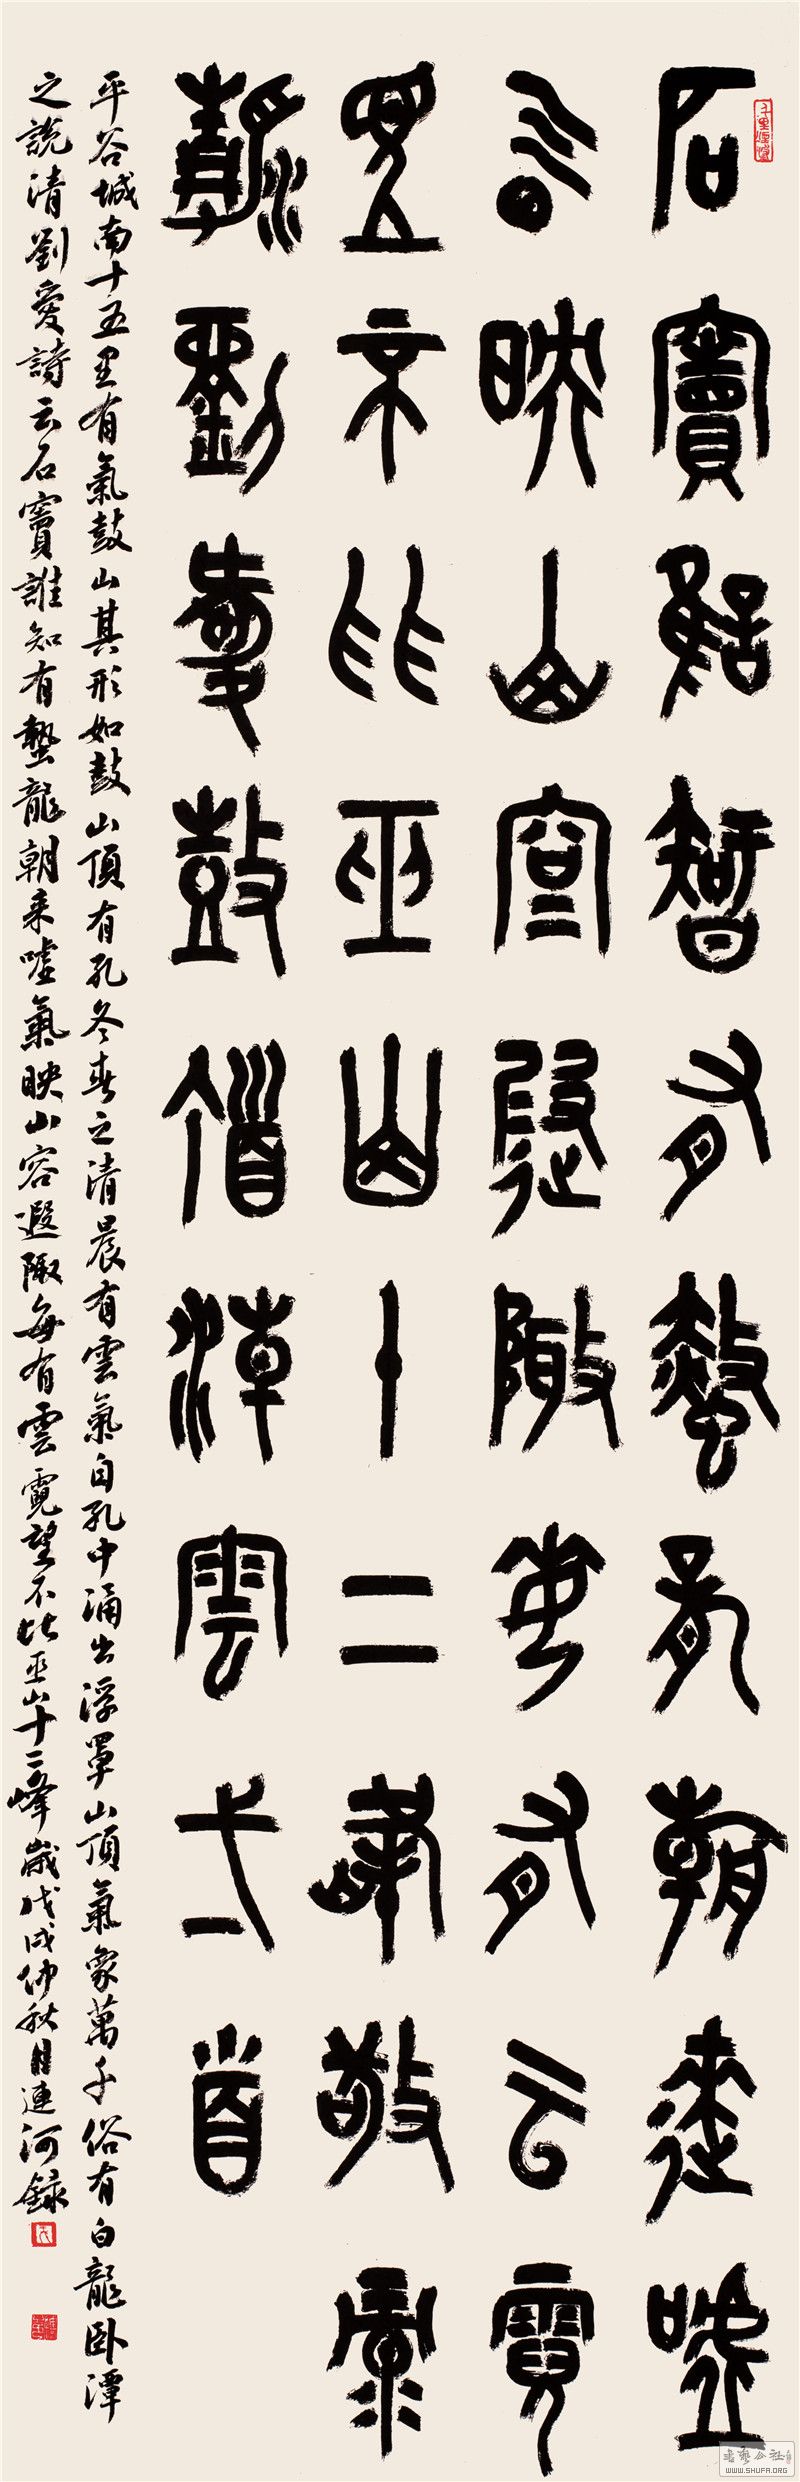 石竇誰知有蟄龍朝來噓
气映山容遐陬每有云霓
望不比巫山十二峰敬錄
清劉愛詩鼓㑹潭雲一首
平谷城南十五里有氣鼓山其形如鼓山頂有孔冬春之清晨有雲氣自孔中涌出浮罩山頂氣象萬千俗有白龍卧潭
之說清劉愛詩云石竇誰知有蟄龍朝来噓氣映山容遐陬每有雲霓望不比巫山十二峰歲戊戌仲秋月連河録
WWW.SHUFA.ORG